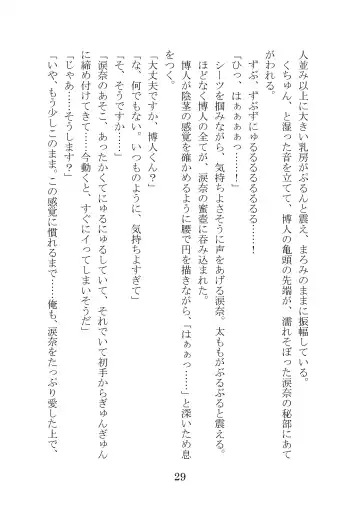 人並み以上に大きい乳房がぷるんと震え、まろみのままに振幅している。
くちゅん、と湿った音を立てて、博人の亀頭の先端が、濡れそぼった涙奈の秘部にあて
がわれる。
ずぷ、ずぷずにゅるるるるるるる……！
「ひっ、はぁぁぁぁっ……！」
シーツを掴みながら、気持ちよさそうに声をあげる涙奈。太ももがぶるぶると震える。
ほどなく博人の全てが、涙奈の蜜壺に呑み込まれた。
博人が陰茎の感覚を確かめるように腰で円を描きながら、「はぁぁっ……」と深いため息
をつく。
「大丈夫ですか、博人くん？」
「な、何でもない。いつものように、気持ちよすぎて」
「そ、そうですか……」
「涙奈のあそこ、あったかくてにゅるにゅるしていて、それでいて初手からぎゅんぎゅん
に締め付けてきて……今動くと、すぐにイってしまいそうだ」
「じゃあ……そうします？」
「いや、もう少しこのまま。この感覚に慣れるまで……俺も、涙奈をたっぷり愛した上で、
29